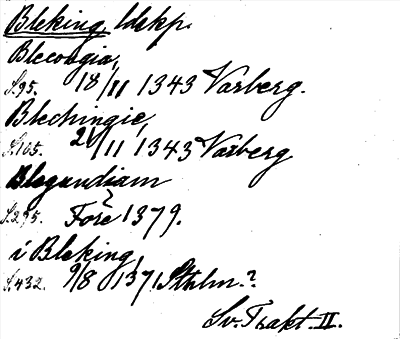 Bleking, ldskp.
Blecongia,
S.95. 18/11 1343 Varberg.
Blechingie,
S.105. 21/11 1343 Varberg
Blegundiam
S.295. Före 1379.
i Bleking,
S.432. 9/8 1371 Sthlm.?
Sv. Trakt. II.